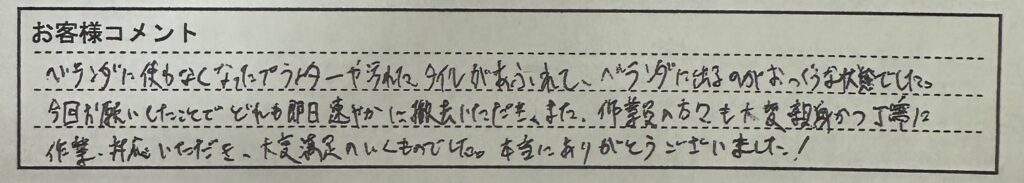 お客様コメント
ベランダに使わなくなったプランターや汚れた、タイルがあふれて、ベランダに出るのがおっくうな状態でした。
今回お願いしたことでどれも即日速やかに撤去いただき、また、作業員の方々も大変親身かつ丁寧に
作業、対応いただき、大変満足のいくものでした。本当にありがとうございました!